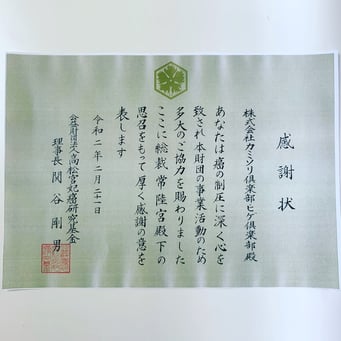 感謝状
株式会社カミシリ倶楽部ヒゲ倶楽部 殿
あなたは癌の制圧に深く心を
致され本財団の事業活動のため
多大のご協力を賜わりました
ここに総裁常陸宮殿下の
思召をもって厚く感謝の意を
表します
令和二年二月二十一日
公益財団法人高松宮妃癌研究基金
理事長 関谷剛男